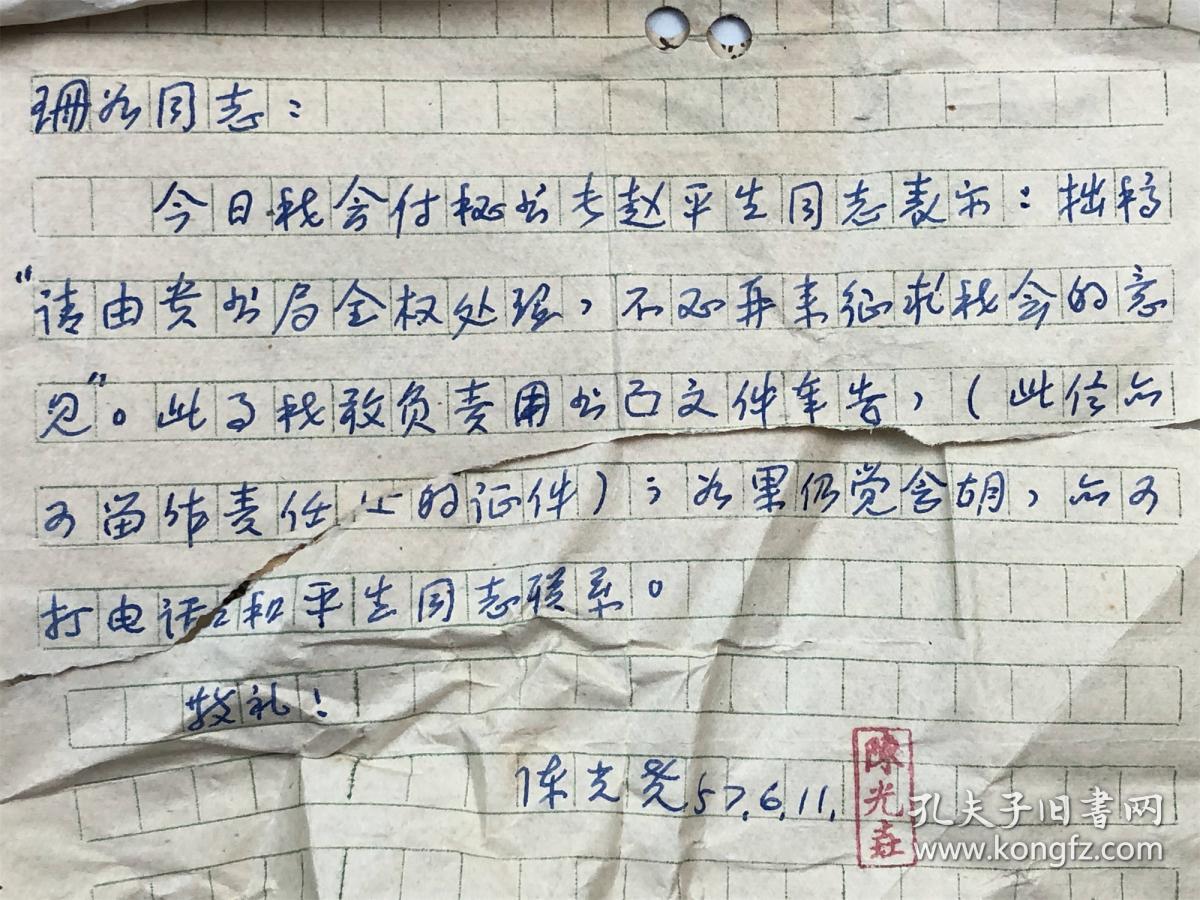 珊如同志：
今日我会付秘书长赵平生同志表示：拙稿
“请由贵书局全权处理，不必再来征求我会的意
见”。此事我敢负责用书面文件奉告，（此信亦
可留作责任上的证件）；如果仍觉含胡，亦可
打电话和平生同志联系。
敬礼！
陈光尧 57.6.11.
陳光垚
孔夫子旧书网
www.kongfz.com